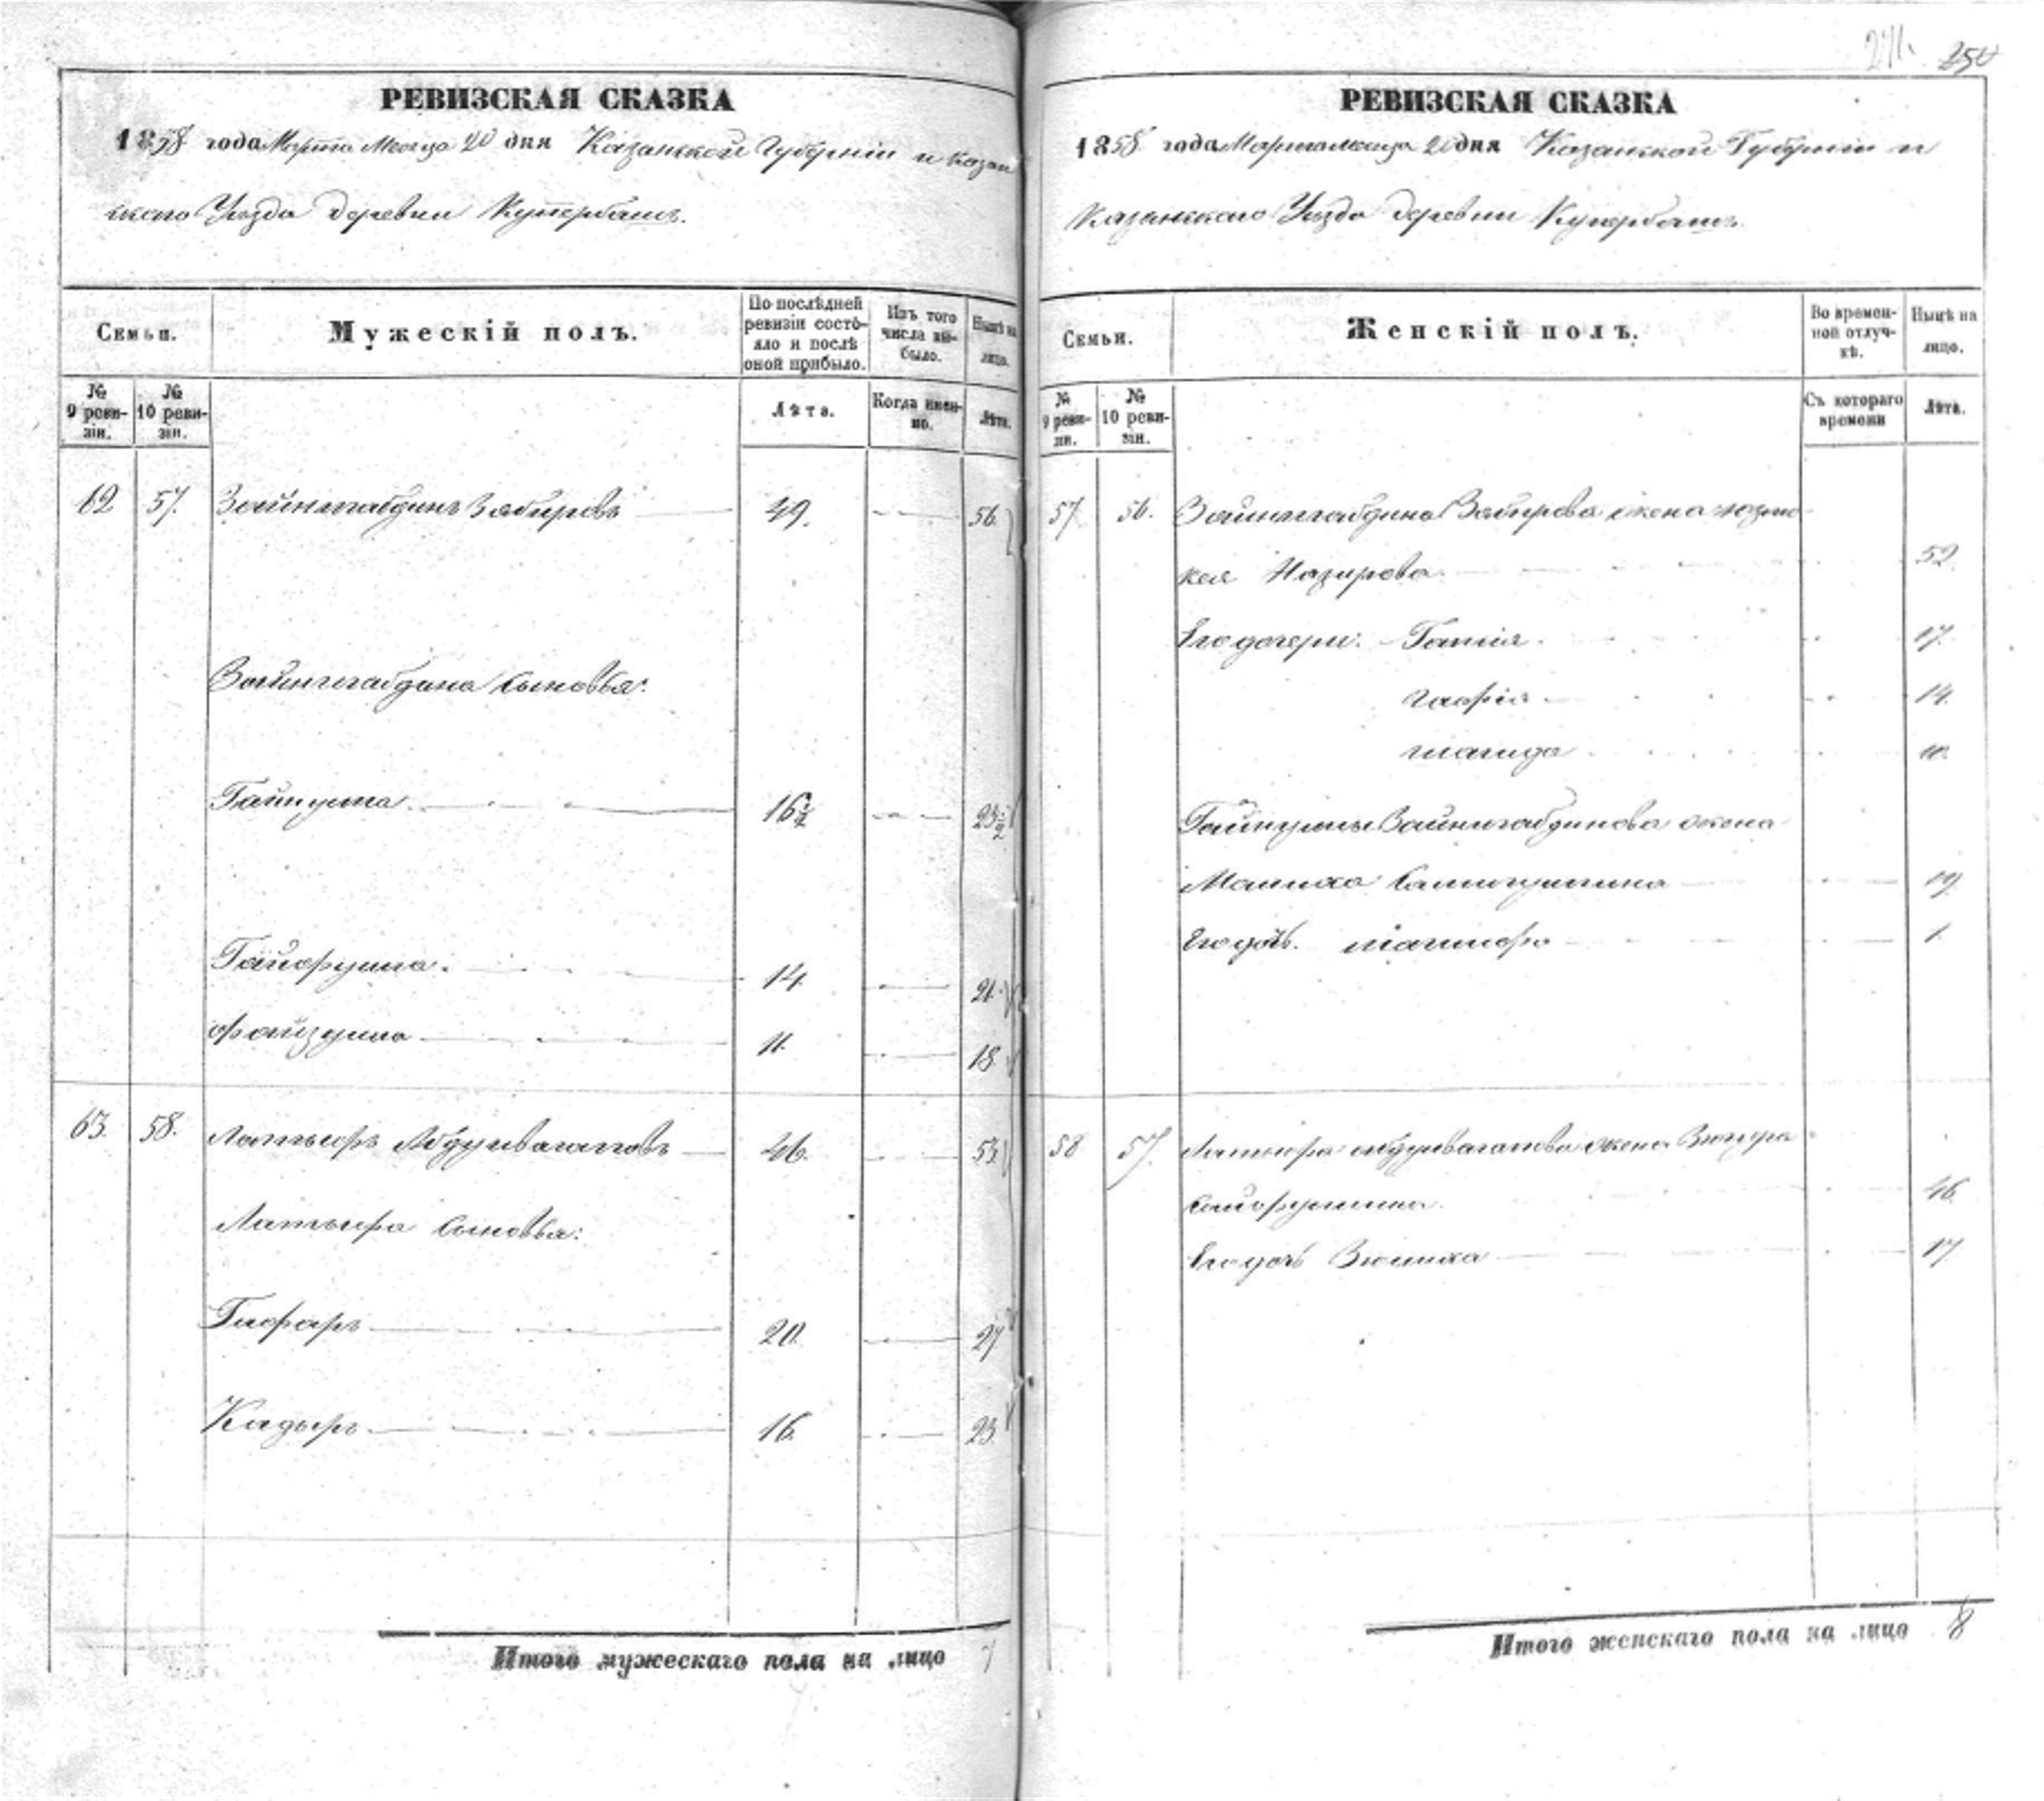 241. 250
РЕВИЗСКАЯ СКАЗКА
1858 года Марта Месяца 20 дня Казанской Губернiи и Казан
скаго Уѣзда деревни Кутербашъ.
Семьи.
Мужескій полъ.
По послѣдней ревизіи состо-
яло и послѣ
оной прибыло.
Изъ того
числа вы-
было.
Нынѣ на
лицо.
№
9 реви-
зіи.
№
10 реви-
зіи.
Лѣта.
Когда имен-
но.
Лѣта.
62 57. Зайнигабдинъ Забировъ 49. 56
Зайнигабдина сыновья:
Гайнулла 16½ 23½
Гайфулла 14. 21.
Файзулла 11. 18
63. 58. Латыфъ Абдулвагаповъ 46. 53
Латыфа сыновья:
Гафаръ 20. 27
Кадыръ 16 23
Итого мужескаго пола на лицо 7
РЕВИЗСКАЯ СКАЗКА
1858 года Марта месяца 20 дня Казанской Губернiи и
Казанскаго Уѣзда деревни Кутербашъ.
Семьи.
Женскій полъ.
Во времен-
ной отлуч-
кѣ.
Нынѣ на
лицо.
№
9 реви-
зіи.
№
10 реви-
зіи.
Съ котораго
времени
Лѣта.
57 56. Зайнигабдина Забирова жена
Назирова. 52.
Его дочери: Гатiя. 17.
Гафiя 14.
10.
Гайнуллы Зайнигабдинова жена
Малиха 19
Его дочь. 1.
58 57. Латыфа Абдулвагапова жена
Сайфуллина. 46.
Его дочь Зюлиха 17
Итого женскаго пола на лицо 8